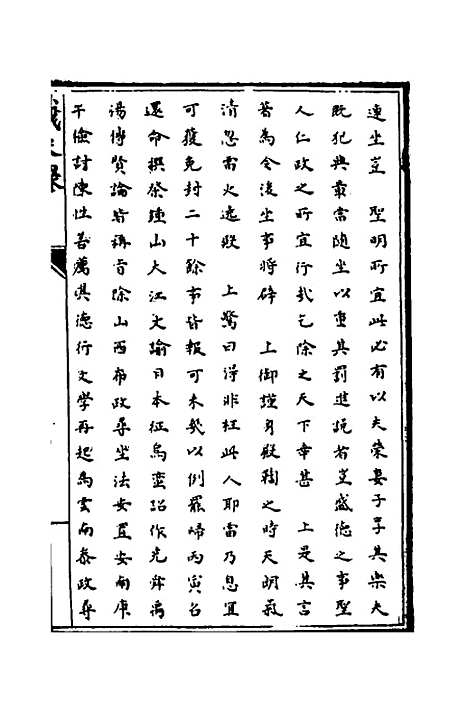 連坐豈　聖明所宜此必有以夫榮妻子享其樂夫
既犯典章當隨坐以重其罰進說者豈盛德之事聖
人仁政之所宜行哉乞除之天下幸甚　上是其言
著為令後坐事將辟　上御謹身殿鞫之時天明氣
清忽雷火遶殿　上驚曰得非枉此人耶雷乃息宜
可獲免封二十餘事皆報可未幾以例罷歸丙寅召
還命撰祭鍾山大江文諭日本征烏蠻詔作光舜禹
湯傅賢論皆稱旨除山西布政尋坐法安置安南康
干儉討陳性善薦其德行文學再起為雲南泰政尋